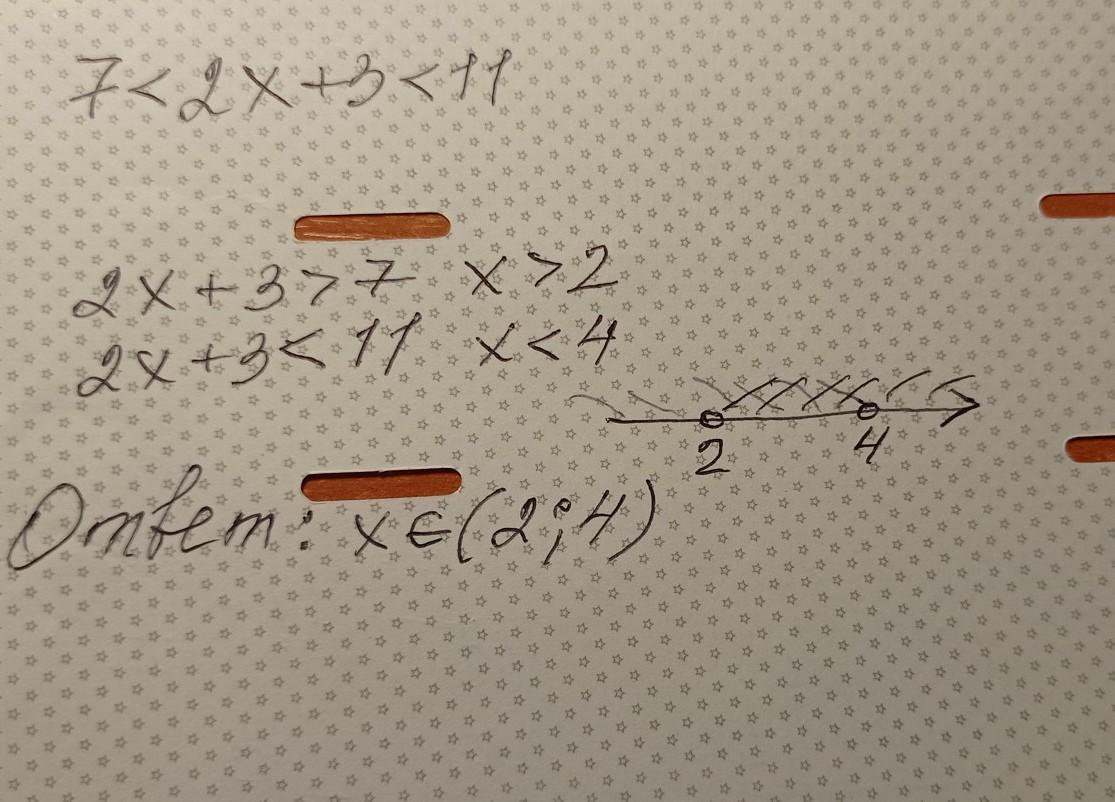 7<2x+3<11
2x+3>7 x>2
2x+3<11 x<4
2 4
Ответ: x∈(2;4)